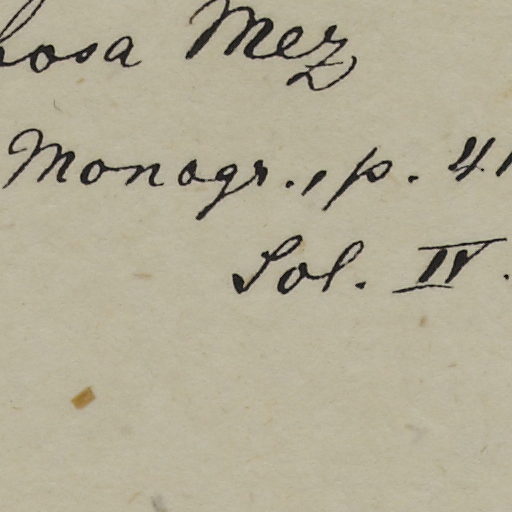 hosa Mez
Monogr., p. 41
Sol. IV.